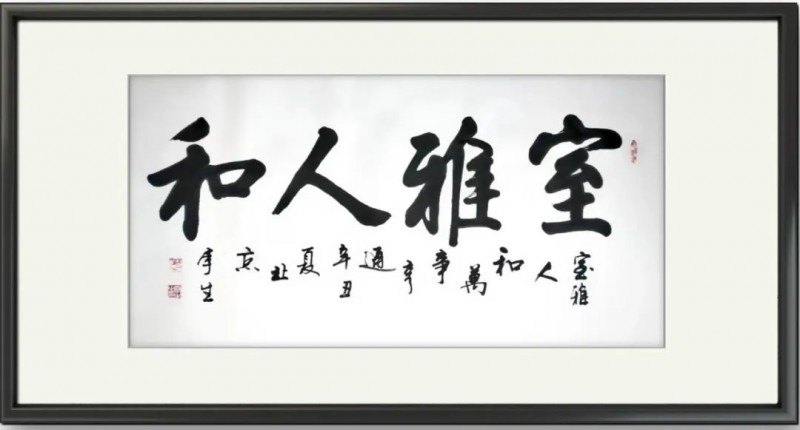 室雅人和
室雅人和萬事亨通辛丑夏北京生